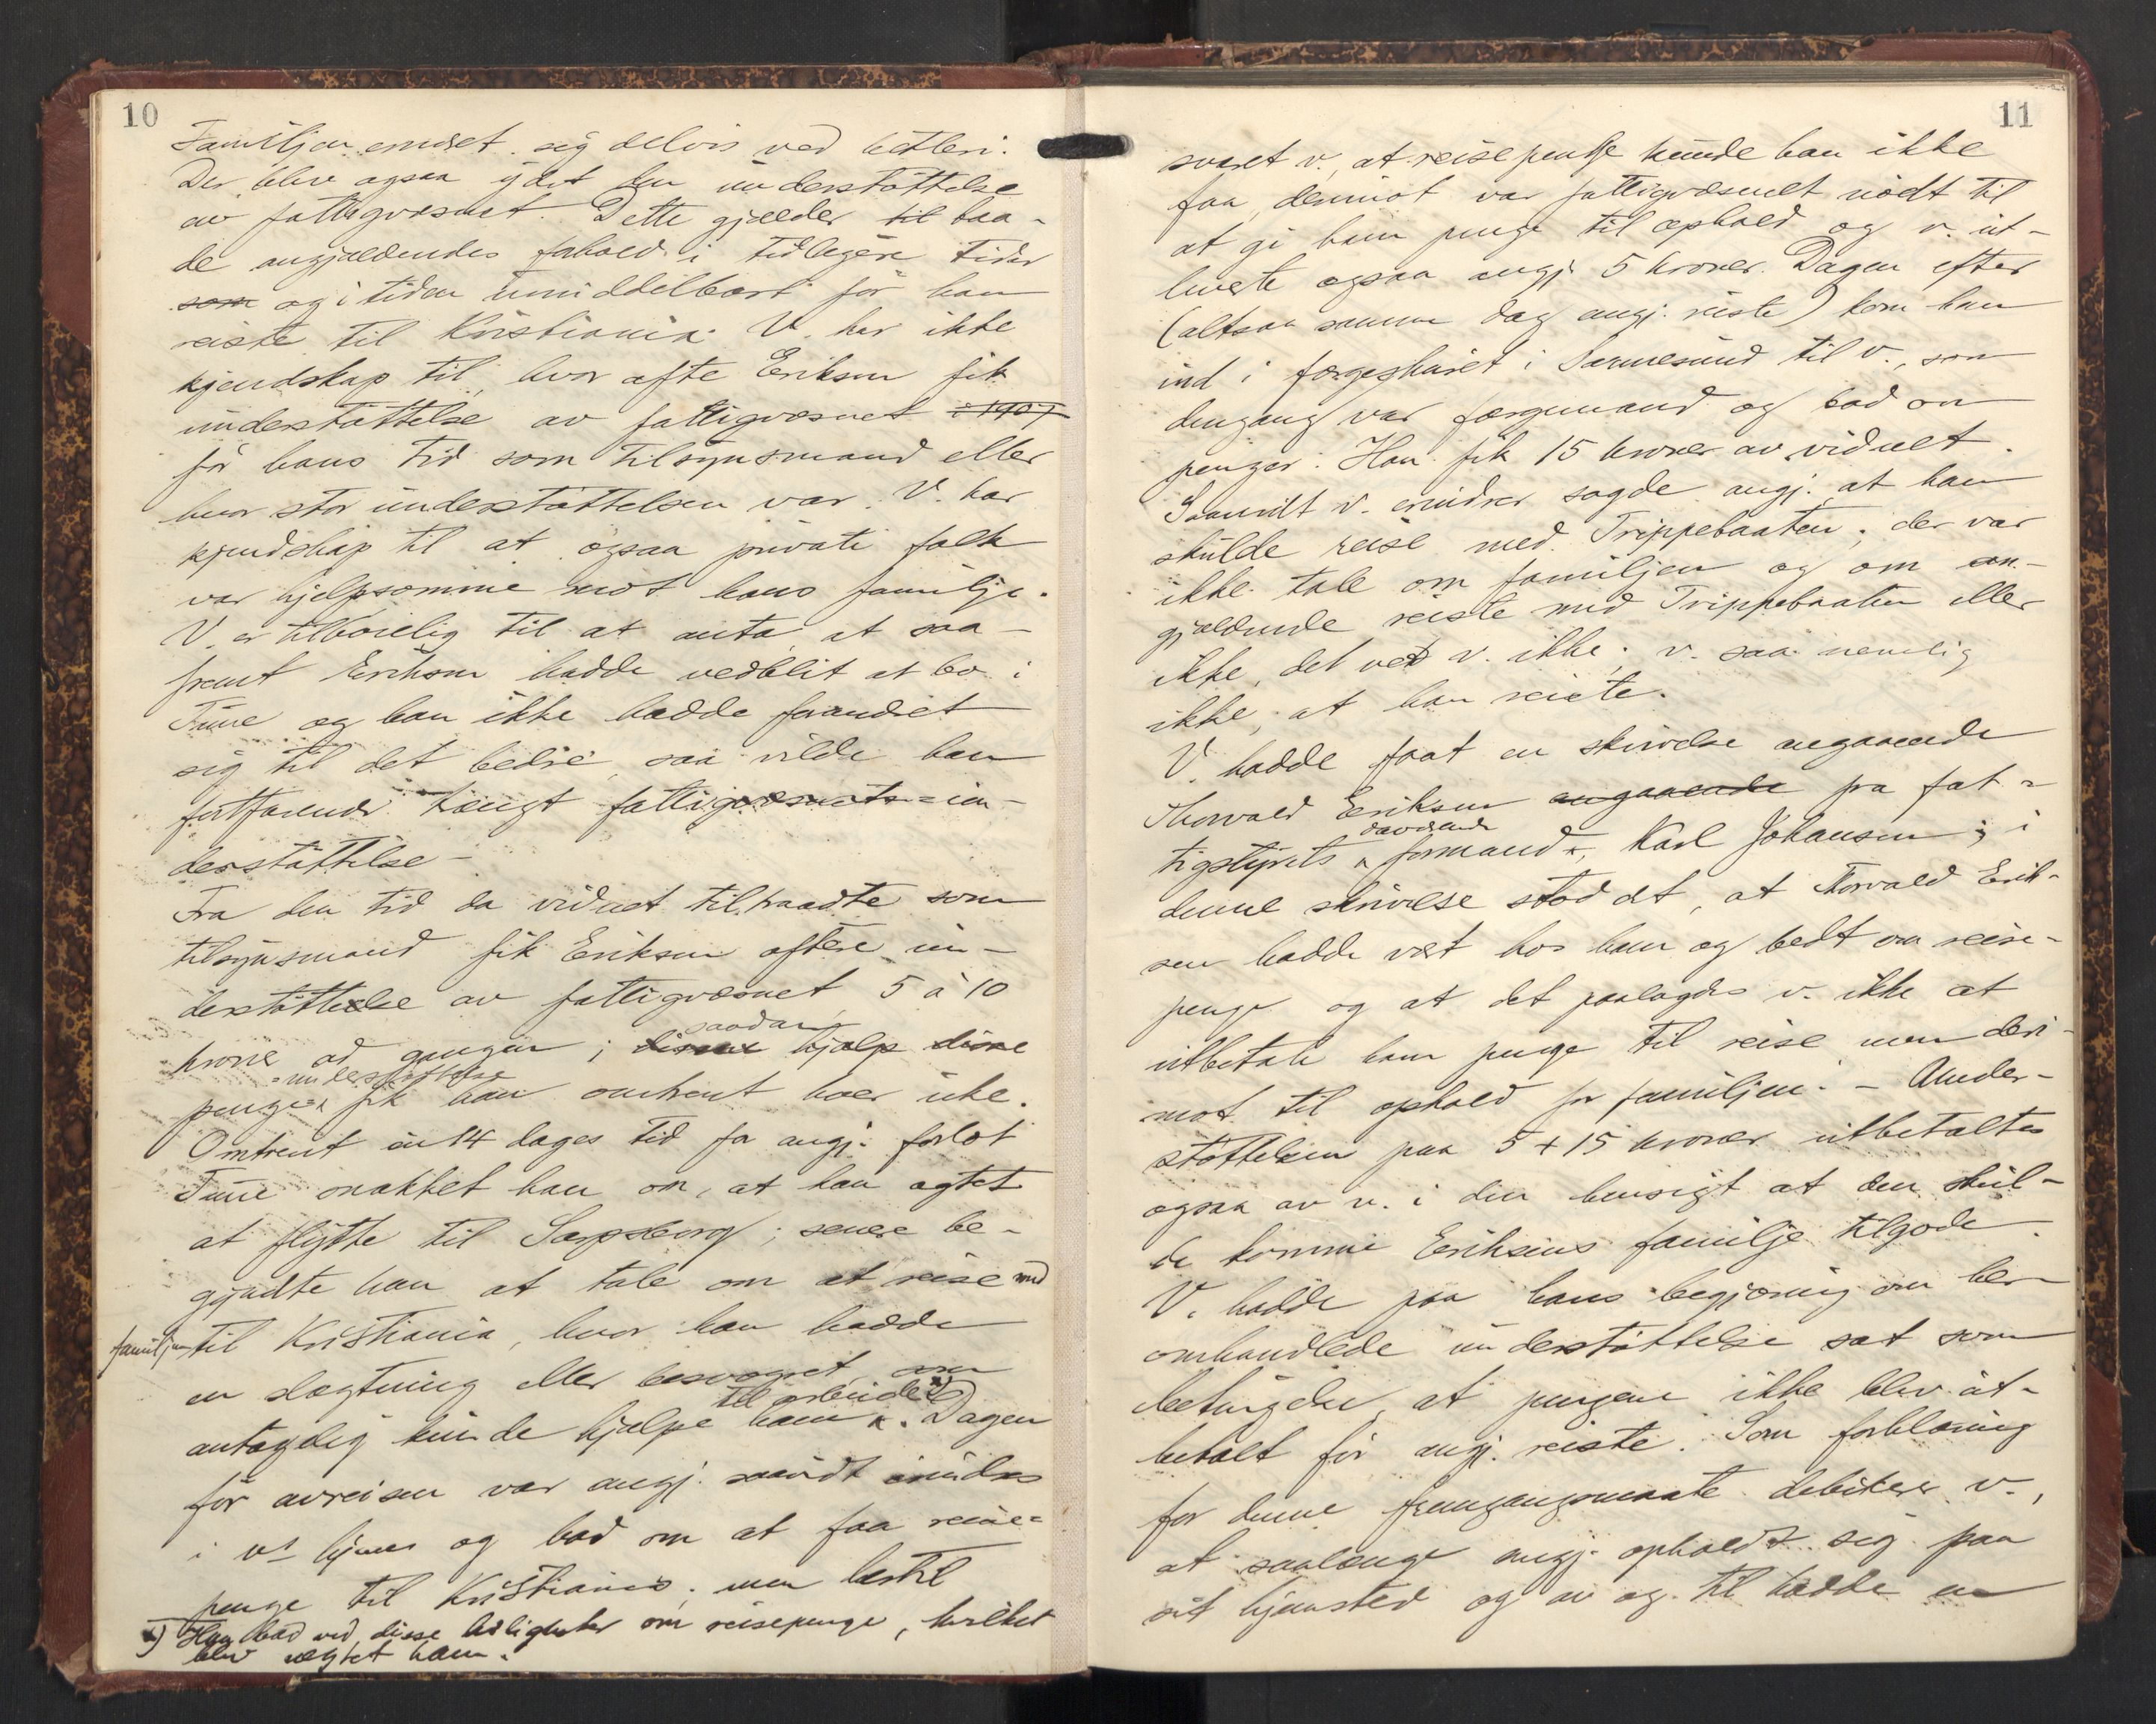 10
Familjen ernæret sig delvis ved betleri.
Der blev ogsaa ydet den understøttelse
av fattigvæsnet. Dette gjælder til baa-
de angjældendes forhold i tidligere tider
som og i tiden umiddelbart før han
reiste til Kristiania. V. har ikke
kjendskap til, hvor ofte Eriksen fik
understøttelse av fattigvæsnet i 1907
før hans tid som tilsynsmand eller
hvor stor understøttelsen var. V. har
kjendskap til at ogsaa private folk
var hjelpsomme mot hans familje.
V. er tilbøielig til at anta, at saa-
fremt Eriksen hadde vedblit at bo i
Tune og han ikke hadde forandret
sig til det bedre, saa vilde han
fortfarende trængt fattigvæsnets un-
derstøttelse –
Fra den tid da vidnet tiltraadte som
tilsynsmand fik Eriksen oftere un-
derstøttelse av fattigvæsnet, 5 à 10
saadan
krone ad gangen; denne hjælp disse
understøttelse
penger fik han omtrent hver uke.
Omtrent en 14 dages tid før angj. forlot
Tune snakket han om, at han agtet
at flytte til Sarpsborg; senere be-
gyndte han at tale om at reise med
familjen til Kristiania, hvor han hadde
en slægtning eller besvogret, som
til arbeide x)
antagelig kunde hjelpe ham. Dagen
før avreisen var angj. saavidt erindres
i v's hjem og bad om at faa reise-
penge til Kristiania; men hertil
x) Han bad ved disse leiligheter om reisepenge, hvilket
blev nægtet ham.
11
svaret v., at reisepenge kunde han ikke
faa, derimot var fattigvæsnet nødt til
at gi ham penge til ophold og v. ut-
leverte ogsaa angj. 5 kroner. Dagen efter
(altsaa samme dag angj. reiste) kom han
ind i færgeskuret i Sannesund til v., som
dengang var færgemand og bad om
penger. Han fik 15 kroner av vidnet.
Saavidt v. erindrer sagde angj. at han
skulde reise med Trippebaaten; der var
ikke tale om familjen og om an-
gjældende reiste med Trippebaaten eller
ikke, det vet v. ikke; v. saa nemlig
ikke, at han reiste.
V. hadde faat en skrivelse angaaende
Thorvald Eriksen angaaende fra fat-
daværende
tigstyrets formand, Karl Johansen; i
denne skrivelse stod det, at Thorvald Erik-
sen hadde vært hos ham og bedt om reise-
penge og at det paalagdes v. ikke at
utbetale ham penge til reise men deri-
mot til ophold for familjen. – Under-
støttelsen paa 5 + 15 kroner utbetaltes
ogsaa av v. i den hensigt at den skul-
de komme Eriksens familje tilgode.
V. hadde paa hans begjæring om her-
omhandlede understøttelse sat som
betingelse, at pengene ikke blev ut-
betalt før angj. reiste. Som forklaring
for denne fremgangsmaate v.,
at saalænge angj. opholdt sig paa
sit hjemsted og av og til hadde en